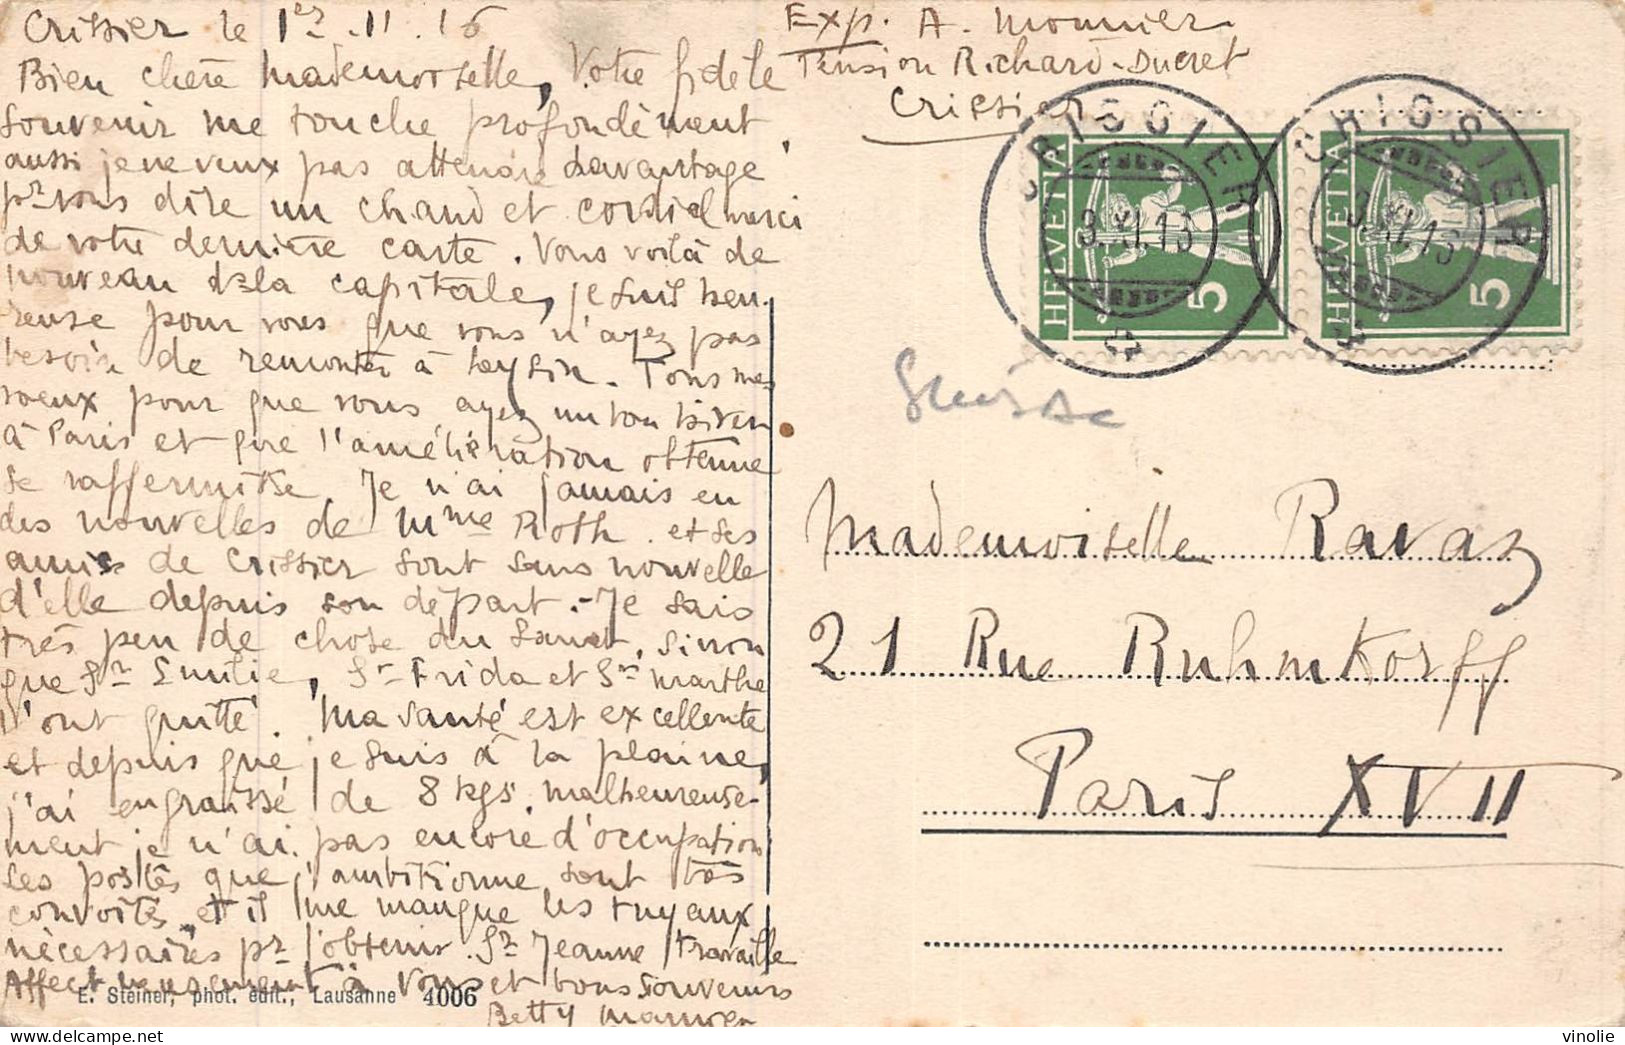 Crissier le 1er. 11. 16
Bien chère Mademoiselle, Votre fidèle
souvenir me touche profondément,
aussi je ne veux pas attendre davantage
pr vous dire un chaud et cordial merci
de votre dernière carte. Vous voilà de
nouveau ds la capitale, je suis heu-
reuse pour vous que vous n'ayez pas
besoin de remonter à Leysin. Tous mes
voeux pour que vous ayez un bon hiver
à Paris et que l'amélioration obtenue
se raffermisse. Je n'ai jamais eu
des nouvelles de Mme Roth et ses
amis de Crissier sont sans nouvelle
d'elle depuis son départ. - Je sais
très peu de chose du Sanat, sinon
que Sr Emilie, Sr Frida et Sr Marthe
l'ont quitté. Ma santé est excellente
et depuis que je suis à la plaine,
j'ai engraissé de 8 kgs. Malheureuse-
ment je n'ai pas encore d'occupation
Les postes que j'ambitionne sont très
convoités, et il me manque les tuyaux
nécessaires pr l'obtenir. Sr Jeanne travaille
Affectueusement à vous et bons souvenirs
Betty
E. Steiner, phot. édit., Lausanne 4006
Exp. A. Monnier
Pension Richard-Ducret
Crissier
CRISSIER
3.XI.16
HELVETIA
5
CRISSIER
3.XI.16
HELVETIA
5
Suisse
Mademoiselle Ravaz
21 Rue Ruhmkorff
Paris XVII
vinolie